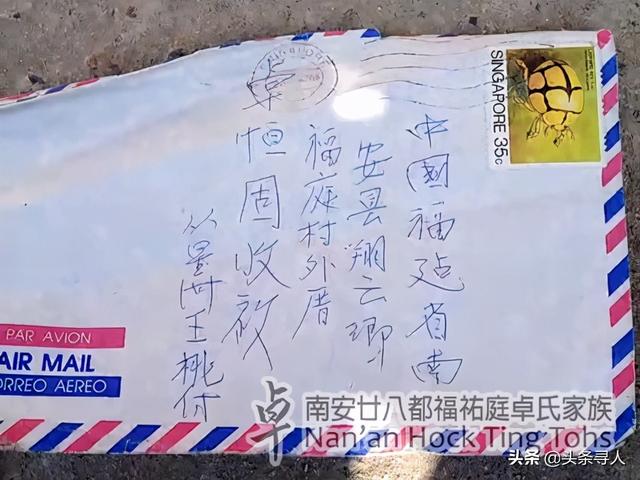 SINGAPORE 35c
中國福建省南
安县翔云鄉
福庭村外厝
卓恒固收啟
从星洲王桃付
PAR AVION
AIR MAIL
ORREO AEREO
卓
南安廿八都福祐庭卓氏家族
Nan'an Hock Ting Tohs
头条 @头条寻人